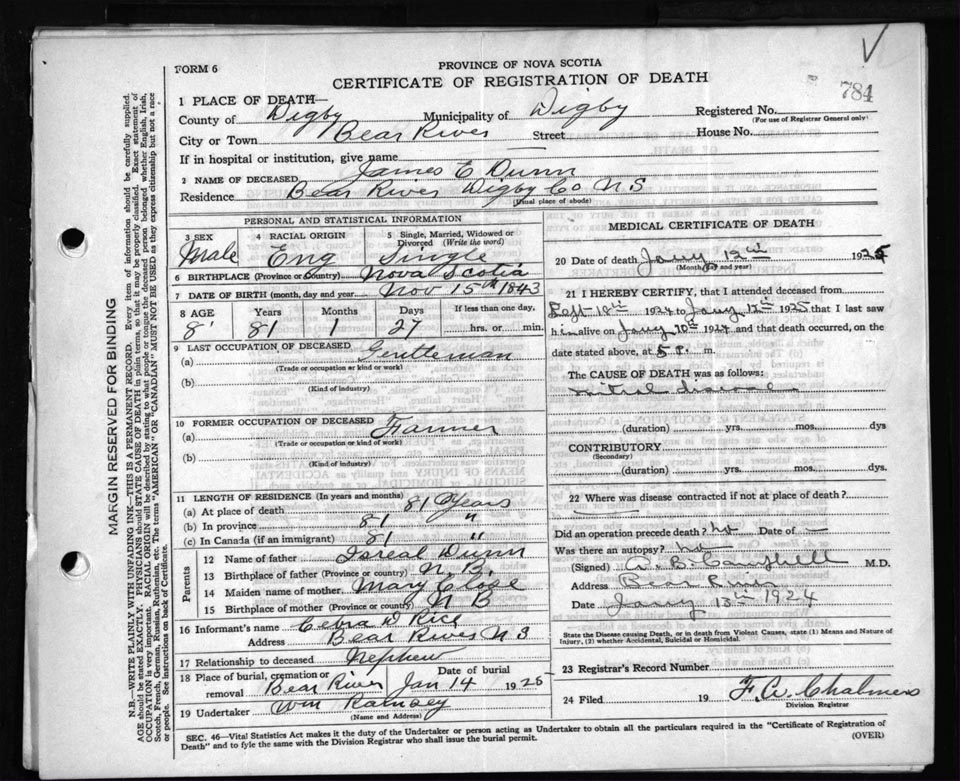 PROVINCE OF NOVA SCOTIA
FORM 6
CERTIFICATE OF REGISTRATION OF DEATH
784
1 PLACE OF DEATH—
County of Digby Municipality of Digby Registered No.
(For use of Registrar General only)
City or Town Bear River Street — House No.
If in hospital or institution, give name
2 NAME OF DECEASED James E Dunn
Residence Bear River Digby Co N.S
(Usual place of abode)
PERSONAL AND STATISTICAL INFORMATION
3 SEX Male
4 RACIAL ORIGIN Eng
5 Single, Married, Widowed or Divorced (Write the word) Single
6 BIRTHPLACE (Province or Country) Nova Scotia
7 DATE OF BIRTH (month, day and year) Nov 15th 1843
8 AGE Years Months Days If less than one day,
81 1 27 hrs. or min.
9 LAST OCCUPATION OF DECEASED
(a) Gentleman
(Trade or occupation or kind of work)
(b)
(Kind of industry)
10 FORMER OCCUPATION OF DECEASED
(a) Farmer
(Trade or occupation or kind of work)
(b)
(Kind of industry)
11 LENGTH OF RESIDENCE (In years and months)
(a) At place of death 81 Years
(b) In province 81 "
(c) In Canada (if an immigrant) 81 "
Parents
12 Name of father Isreal Dunn
13 Birthplace of father (Province or country) N.B.
14 Maiden name of mother Mary
15 Birthplace of mother (Province or country) N B
16 Informant's name D Rice
Address Bear River N S
17 Relationship to deceased Nephew
18 Place of burial, cremation or removal Bear River Date of burial Jan 14 1925
19 Undertaker Wm Ramsey
(Name and Address)
MEDICAL CERTIFICATE OF DEATH
20 Date of death Jany 12th 1925
(Month, day and year)
21 I HEREBY CERTIFY, that I attended deceased from
Sept 18th 1924 to Jany 12th 1925 that I last saw
him alive on Jany 10th 1924 and that death occurred, on the
date stated above, at 5 P. m.
The CAUSE OF DEATH was as follows:
mitral disease
(duration) yrs. mos. dys
CONTRIBUTORY
(Secondary)
(duration) yrs. mos. dys.
22 Where was disease contracted if not at place of death?
Did an operation precede death? no Date of —
Was there an autopsy? no
(Signed) B. Campbell M.D.
Address Bear River
Date Jany 13th 1924
State the Disease causing Death, or in death from Violent Causes, state (1) Means and Nature of Injury, (2) whether Accidental, Suicidal or Homicidal.
23 Registrar's Record Number
24 Filed 19 F. W. Chalmers
Division Registrar
SEC. 46—Vital Statistics Act makes it the duty of the Undertaker or person acting as Undertaker to obtain all the particulars required in the "Certificate of Registration of
Death" and to fyle the same with the Division Registrar who shall issue the burial permit.
(OVER)
MARGIN RESERVED FOR BINDING
N.B.—WRITE PLAINLY WITH UNFADING INK—THIS IS A PERMANENT RECORD. Every item of information should be carefully supplied.
AGE should be stated EXACTLY. PHYSICIANS should STATE CAUSE OF DEATH in plain terms, so that it may be properly classified. Exact statement of
OCCUPATION is very important. RACIAL ORIGIN will be described by stating to what people or tongue the deceased person belonged whether English, Irish,
Scotch, French, German, Russian, Ruthenian, etc. The terms "AMERICAN" OR "CANADIAN" MUST NOT BE USED as they express citizenship but not a race
or people. See instructions on back of Certificate.